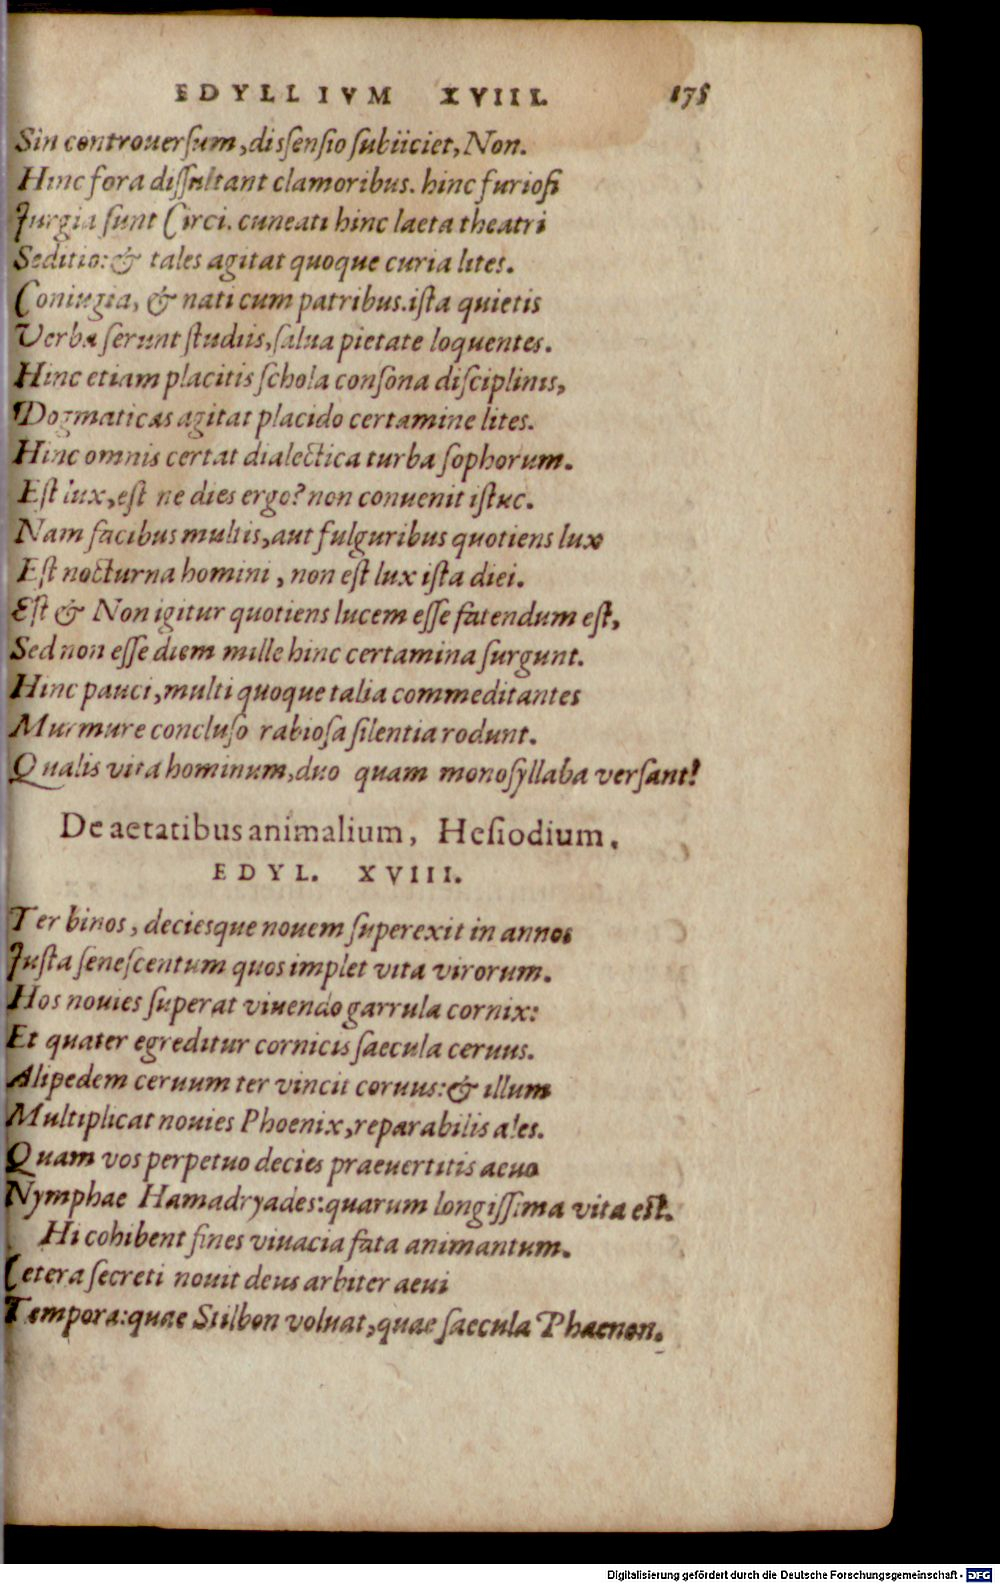 EDYLLIVM XVIII. 175
Sin controuersum, dissensio subiiciet, Non.
Hinc fora dissultant clamoribus. hinc furiosi
Jurgia sunt Circi. cuneati hinc laeta theatri
Seditio: & tales agitat quoque curia lites.
Coniugia, & nati cum patribus. ista quietis
Verba serunt studiis, salua pietate loquentes.
Hinc etiam placitis schola consona disciplinis,
Dogmaticas agitat placido certamine lites.
Hinc omnis certat dialectica turba sophorum.
Est lux, est ne dies ergo? non conuenit istuc.
Nam facibus multis, aut fulguribus quotiens lux
Est nocturna homini, non est lux ista diei.
Est & Non igitur quotiens lucem esse fatendum est,
Sed non esse diem mille hinc certamina surgunt.
Hinc pauci, multi quoque talia commeditantes
Murmure concluso rabiosa silentia rodunt.
Qualis vita hominum, duo quam monosyllaba versant!
De aetatibus animalium, Hesiodium.
EDYL. XVIII.
Ter binos, deciesque nouem superexit in annos
Justa senescentum quos implet vita virorum.
Hos nouies superat viuendo garrula cornix:
Et quater egreditur cornicis saecula ceruus.
Alipedem ceruum ter vincit coruus: & illum
Multiplicat nouies Phoenix, reparabilis ales.
Quam vos perpetuo decies praeuertitis aeuo
Nymphae Hamadryades: quarum longissima vita est.
Hi cohibent fines viuacia fata animantum.
Cetera secreti nouit deus arbiter aeui
Tempora: quae Stilbon voluat, quae saecula Phaenon.
Digitalisierung gefördert durch die Deutsche Forschungsgemeinschaft - DFG